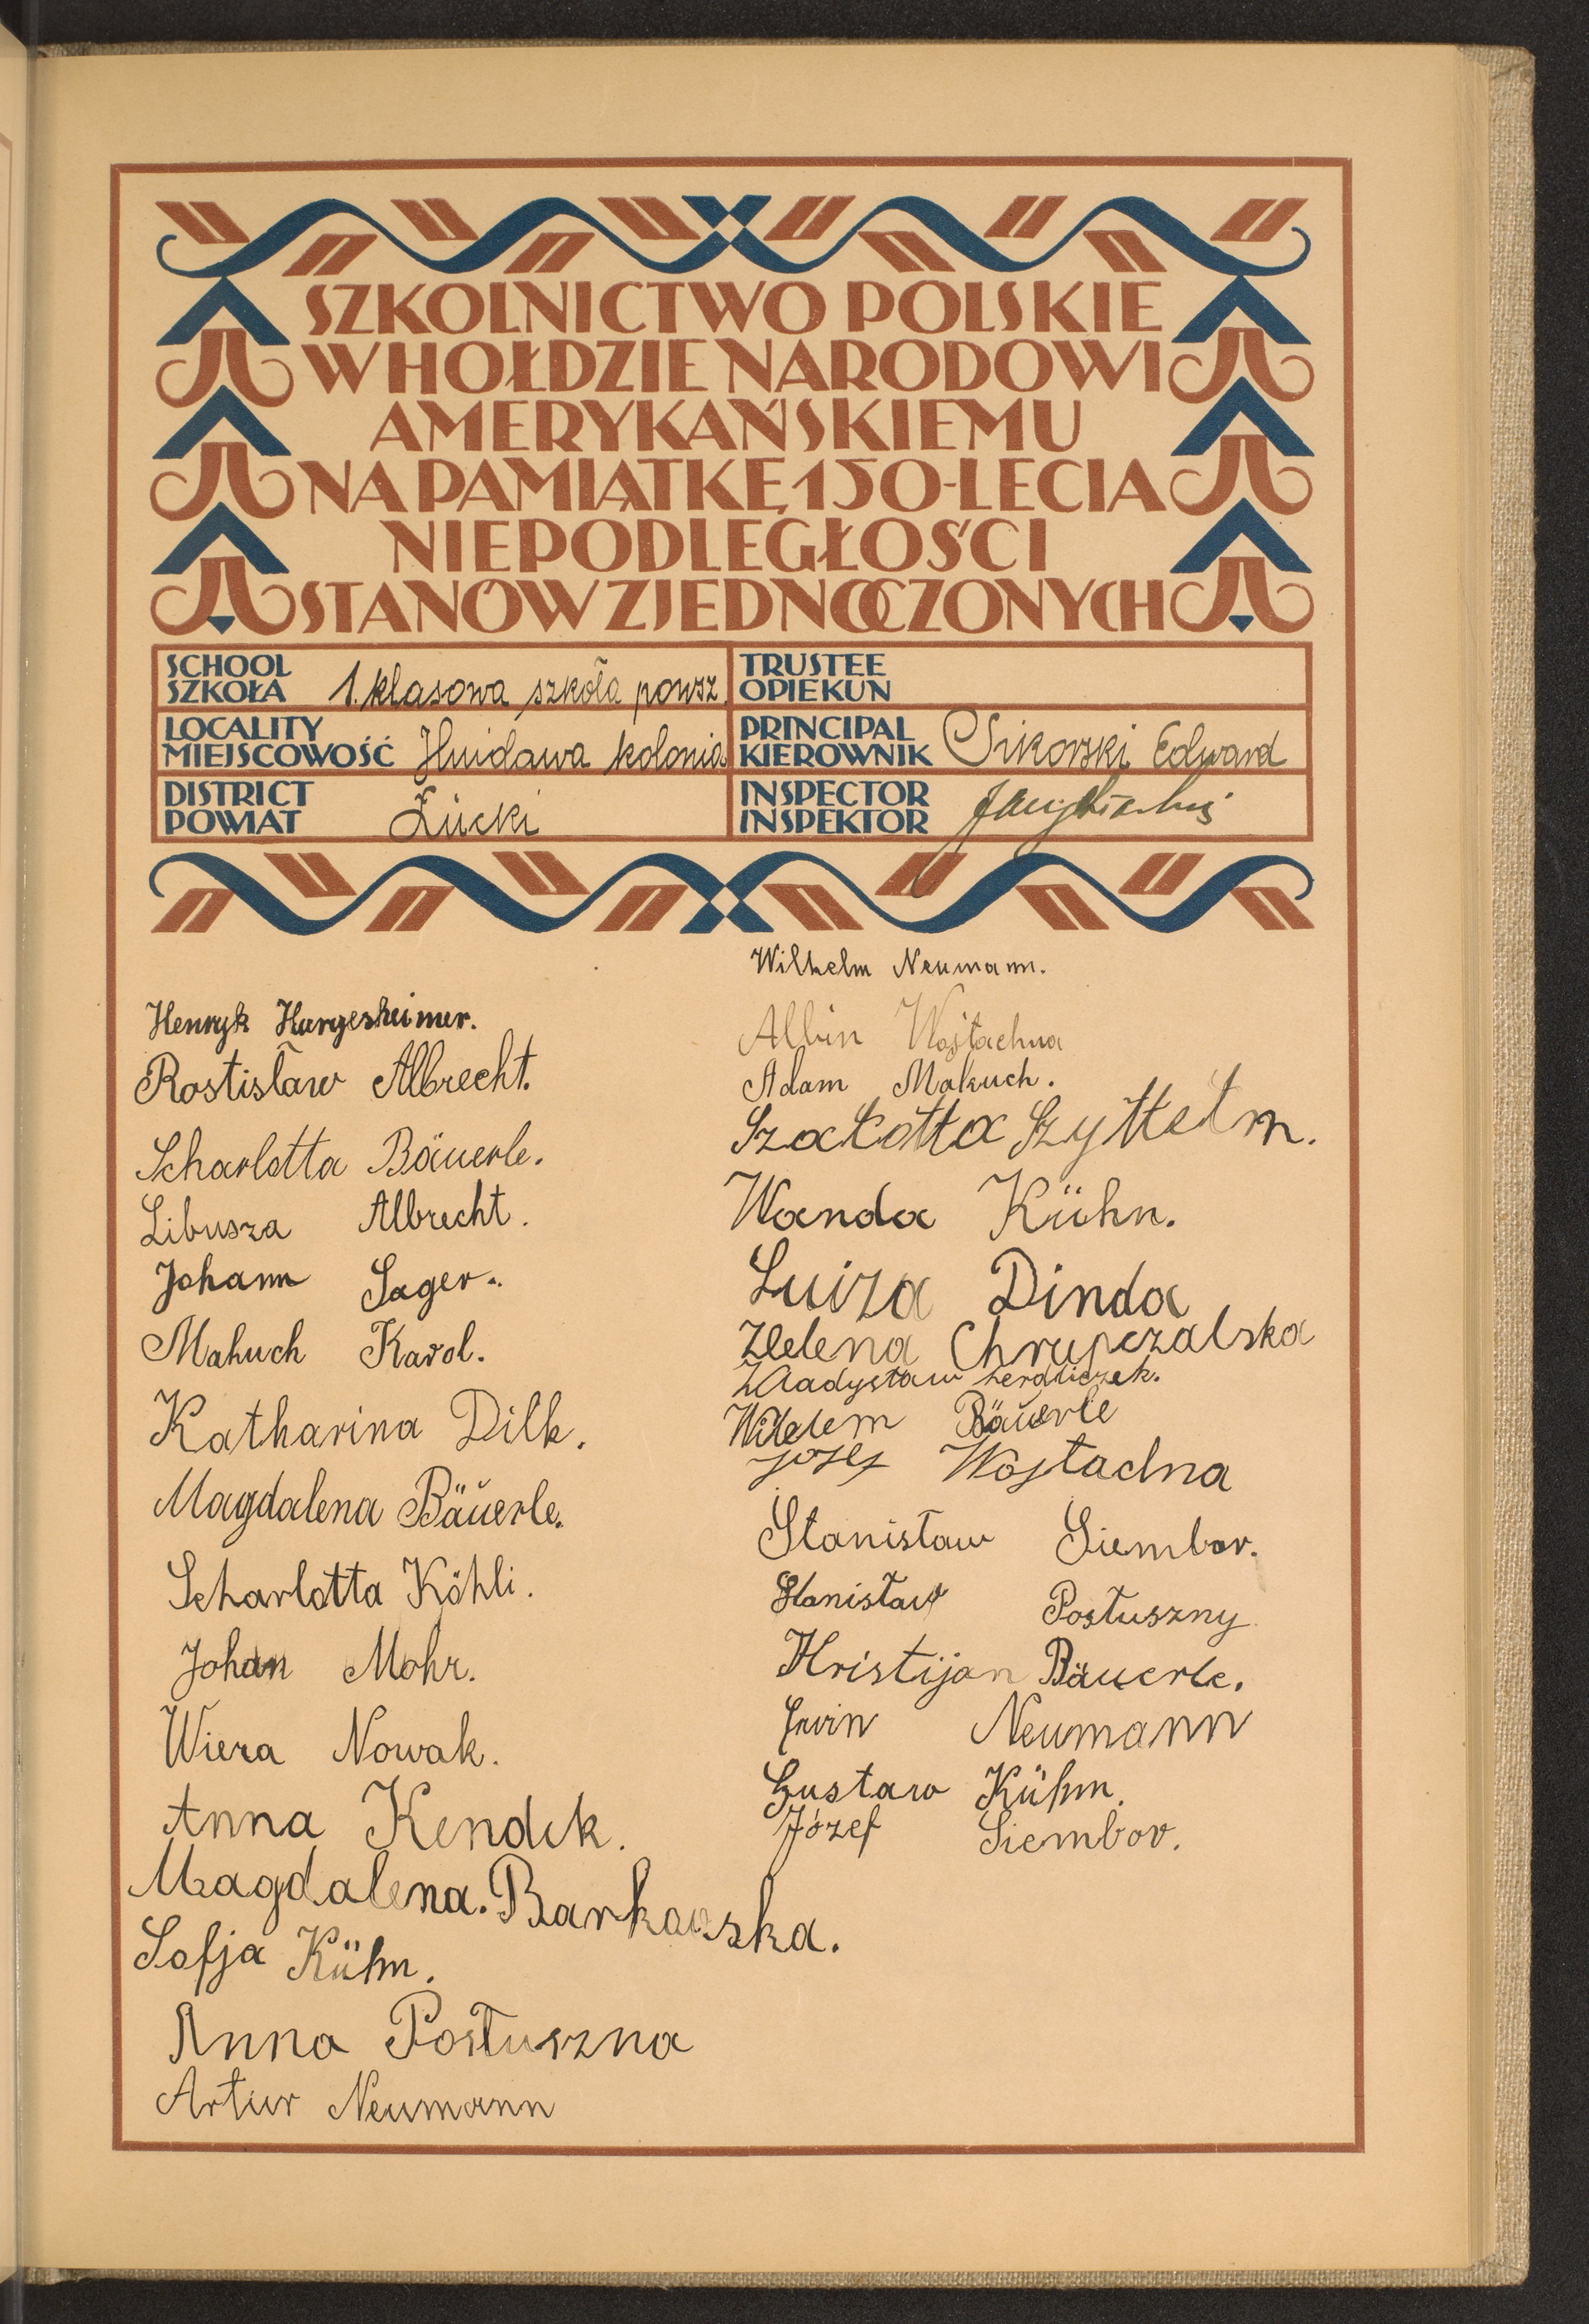 SZKOLNICTWO POLSKIE
W HOŁDZIE NARODOWI
AMERYKAŃSKIEMU
NA PAMIĄTKĘ 150-LECIA
NIEPODLEGŁOŚCI
STANÓW ZJEDNOCZONYCH
SCHOOL
SZKOŁA 1. klasowa szkoła powsz.
TRUSTEE
OPIEKUN
LOCALITY
MIEJSCOWOŚĆ Hnidawa kolonia
PRINCIPAL
KIEROWNIK Sikorski Edward
DISTRICT
POWIAT Łucki
INSPECTOR
INSPEKTOR
Henryk Hargesheimer.
Rostisław Albrecht.
Scharlotta Bäuerle.
Libusza Albrecht.
Johann Sager.
Makuch Karol.
Katharina Dilk.
Magdalena Bäuerle.
Scharlotta Köhli.
Johan Mohr.
Wiera Nowak.
Anna Kendek.
Magdalena. Barkowska.
Sofja Kühn.
Anna Postuszna
Artur Neumann
Wilhelm Neumann.
Albin Wojtachna
Adam Makuch.
Szakotta
Wanda Kühn.
Luiza Dinda
Helena Chrupczalska
Władysław
Wilelem Bäuerle
Josef Wojtachna
Stanisław Siembor.
Stanisław Postuszny
Hristijan Bäuerle.
Ervin Neumann
Gustaw Kühn.
Józef Siembor.